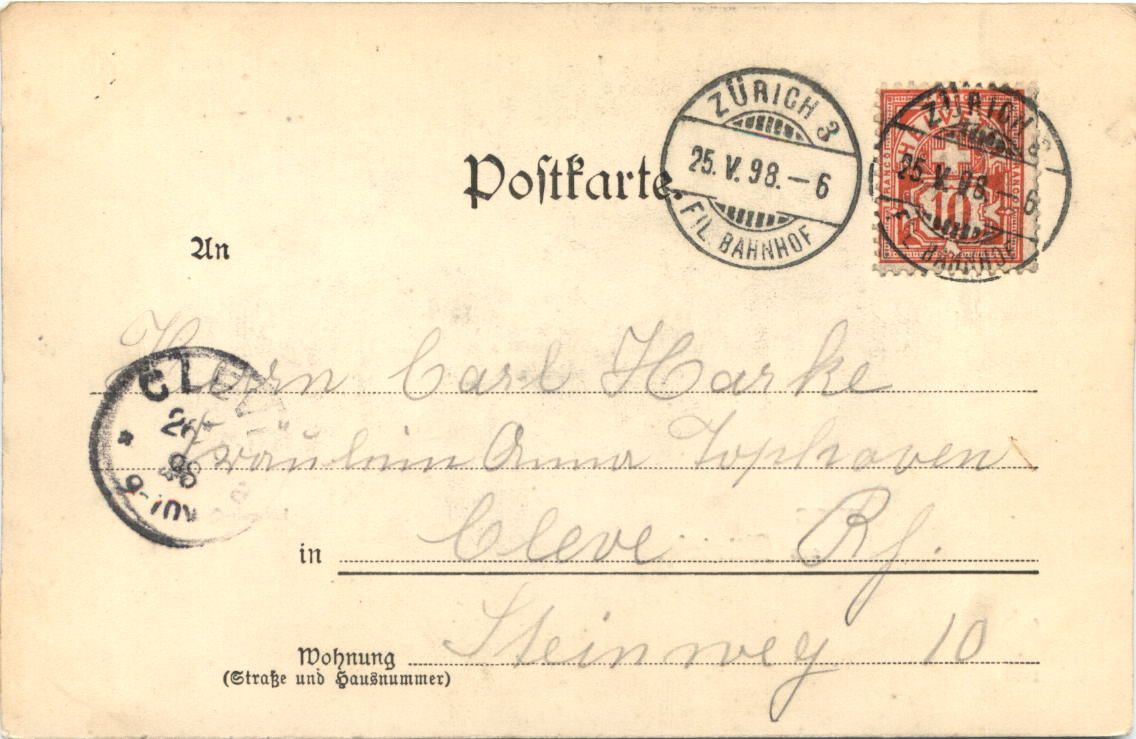 Postkarte.
ZÜRICH 3
25. V. 98. – 6
FIL. BAHNHOF
HELVETIA
FRANCO
10
ZÜRICH 3
25. V. 98. – 6
FIL. BAHNHOF
An
Herrn Carl Harke
Fräulein Anna Tophoven
in Cleve Rh.
Wohnung Steinweg 10
(Straße und Hausnummer)
CLEVE
26
98